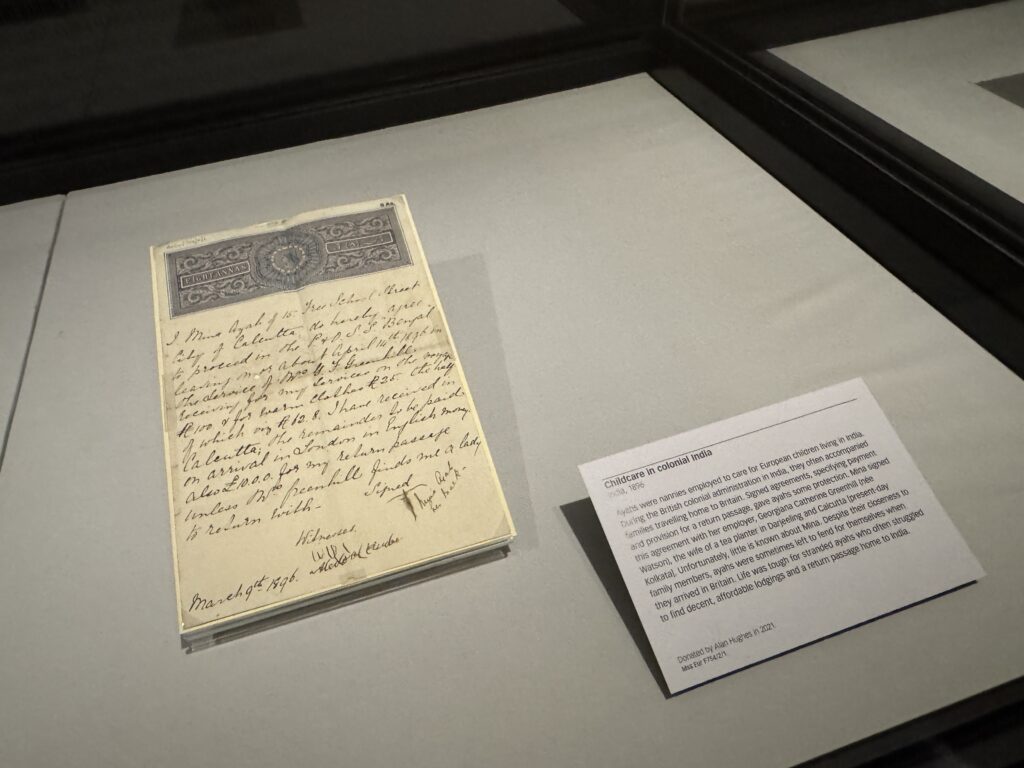 EIGHT ANNAS
I Mina Ayah of 15 Free School Street
City of Calcutta do hereby agree
to proceed in the P & O. S. S. Bengal
leaving on or about April 14th 1896 in
the service of Mrs Greenhill
receiving for my services on the voyage
R 100 & for warm clothes R 25 the half
of which viz R 62. 8. I have received in
Calcutta; the remainder to be paid
on arrival in London in English money
also £10.0.0 for my return passage
unless Mrs Greenhill finds me a lady
to return with.
Signed
Mina Ayah
her mark
Witnesses
March 9th 1896.
Childcare in colonial India
India, 1896
Ayahs were nannies employed to care for European children living in India.
During the British colonial administration in India, they often accompanied
families travelling home to Britain. Signed agreements, specifying payment
and provision for a return passage, gave ayahs some protection. Mina signed
this agreement with her employer, Georgiana Catherine Greenhill (née
Watson), the wife of a tea planter in Darjeeling and Calcutta (present-day
Kolkata). Unfortunately, little is known about Mina. Despite their closeness to
family members, ayahs were sometimes left to fend for themselves when
they arrived in Britain. Life was tough for stranded ayahs who often struggled
to find decent, affordable lodgings and a return passage home to India.
Donated by Alan Hughes in 2021.
Mss Eur F754/2/1